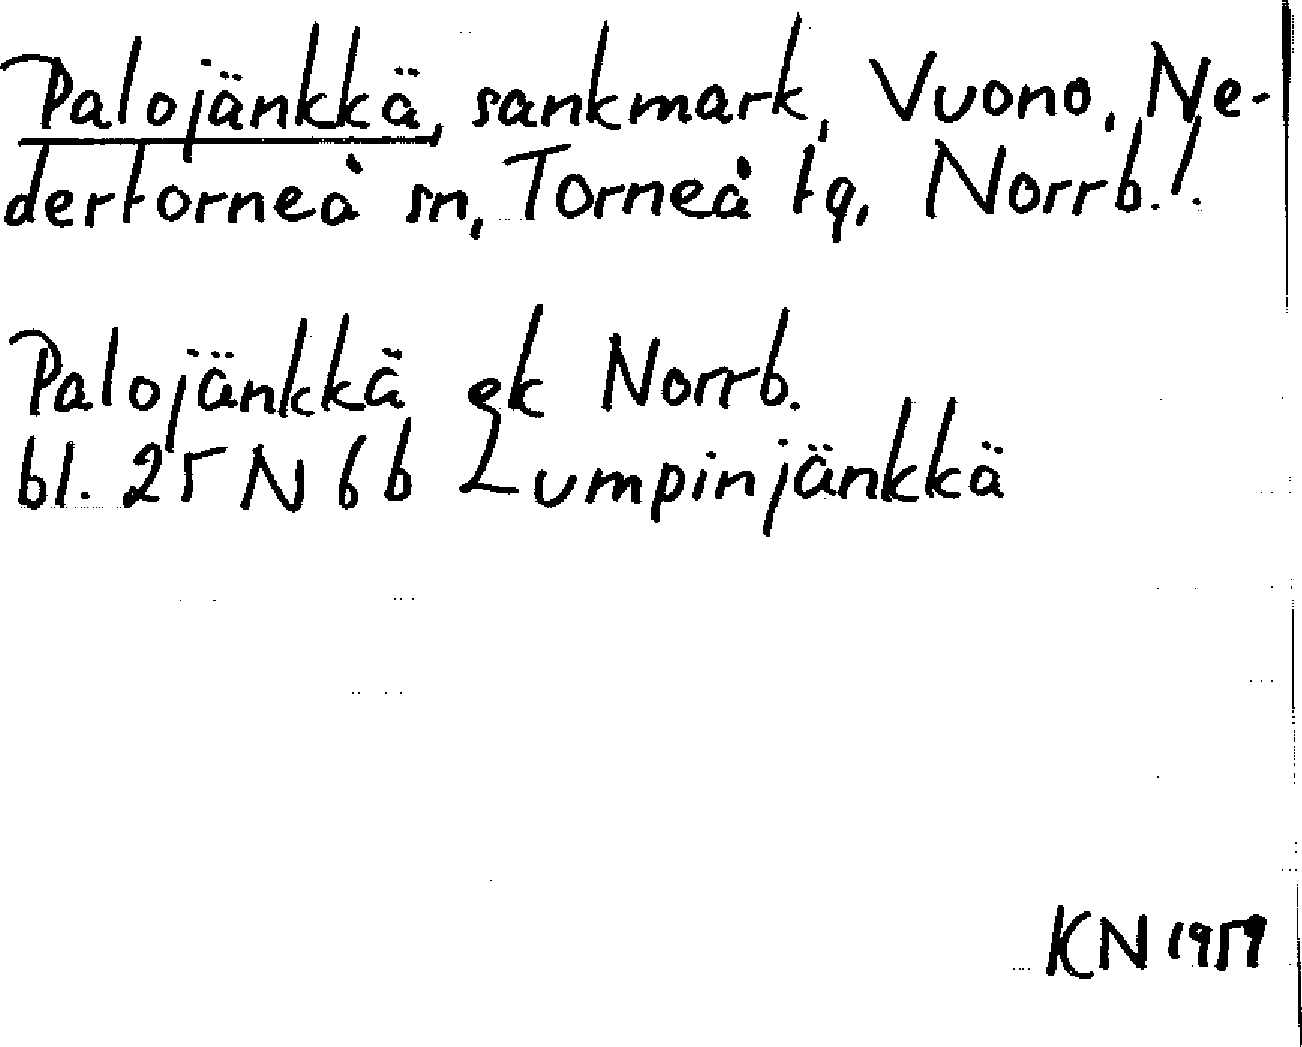 Palojänkkä, sankmark, Vuono, Ne-
dertorneå sn, Torneå tg, Norrb. l.
Palojänkkä ek Norrb.
bl. 25 N 6 b Lumpinjänkkä
KN 1959